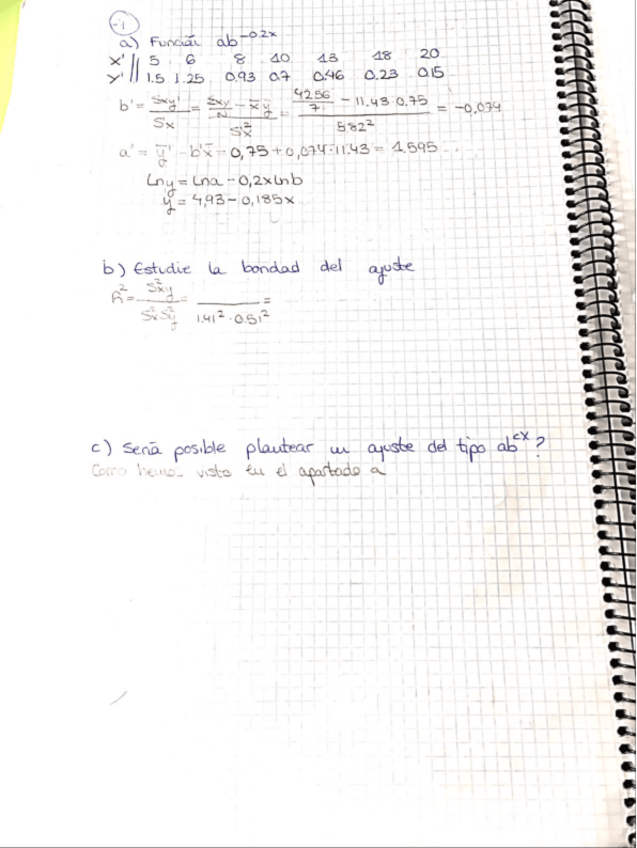 -1
a) Función ab^-0.2x
x' || 5 6 8 10 13 18 20
y' || 1.5 1.25 0.93 0.7 0.46 0.23 0.15
b' = Sxy' / Sx = (Σxy/N - x̄ ȳ) / S²x = (42.56/7 - 11.43·0.75) / 5.82² = -0,074
a' = ȳ' - b'x̄ = 0,75 + 0,074·11.43 = 1.595...
Lny = Lna - 0,2xlnb
y = 4,93 - 0,185x
b) Estudie la bondad del ajuste
R² = S²xy / S²x S²y = / 1.41² · 0.51² =
c) Sería posible plantear un ajuste del tipo ab^cx?
Como hemos visto en el apartado a